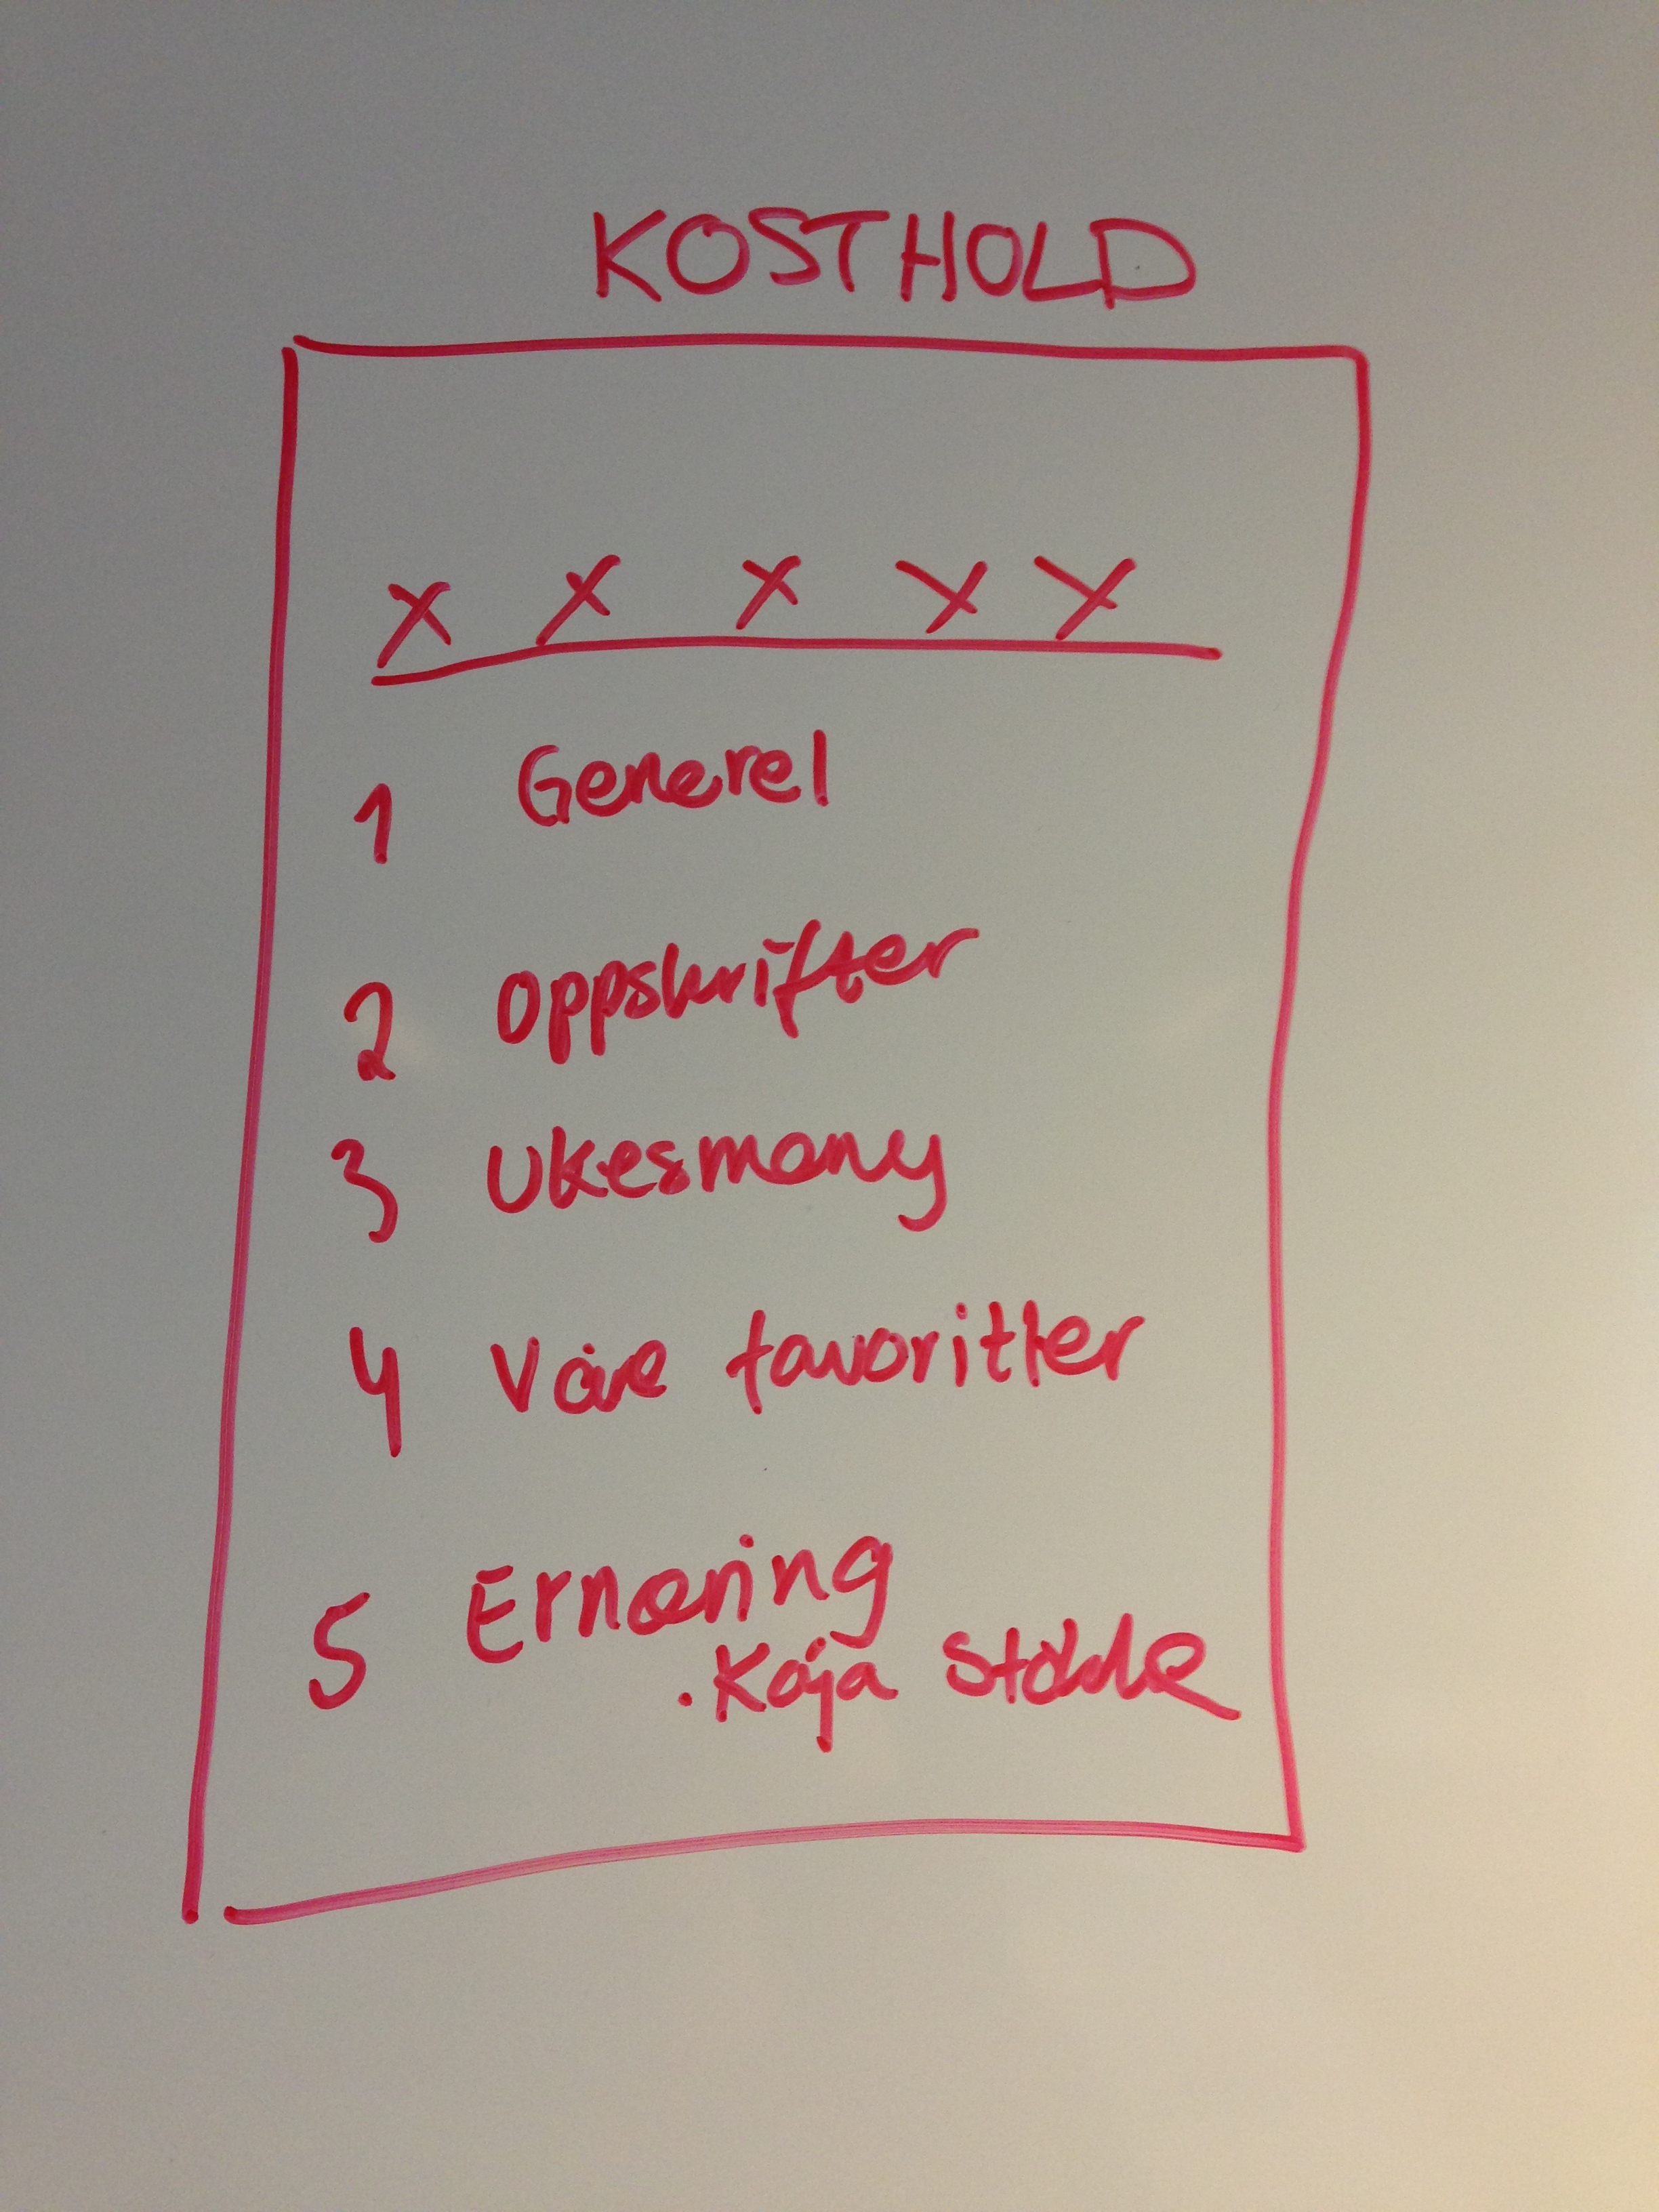 KOSTHOLD
X X X X X
1 Generel
2 Oppskrifter
3 Ukesmeny
4 Våre favoritter
5 Ernæring
. Kaja